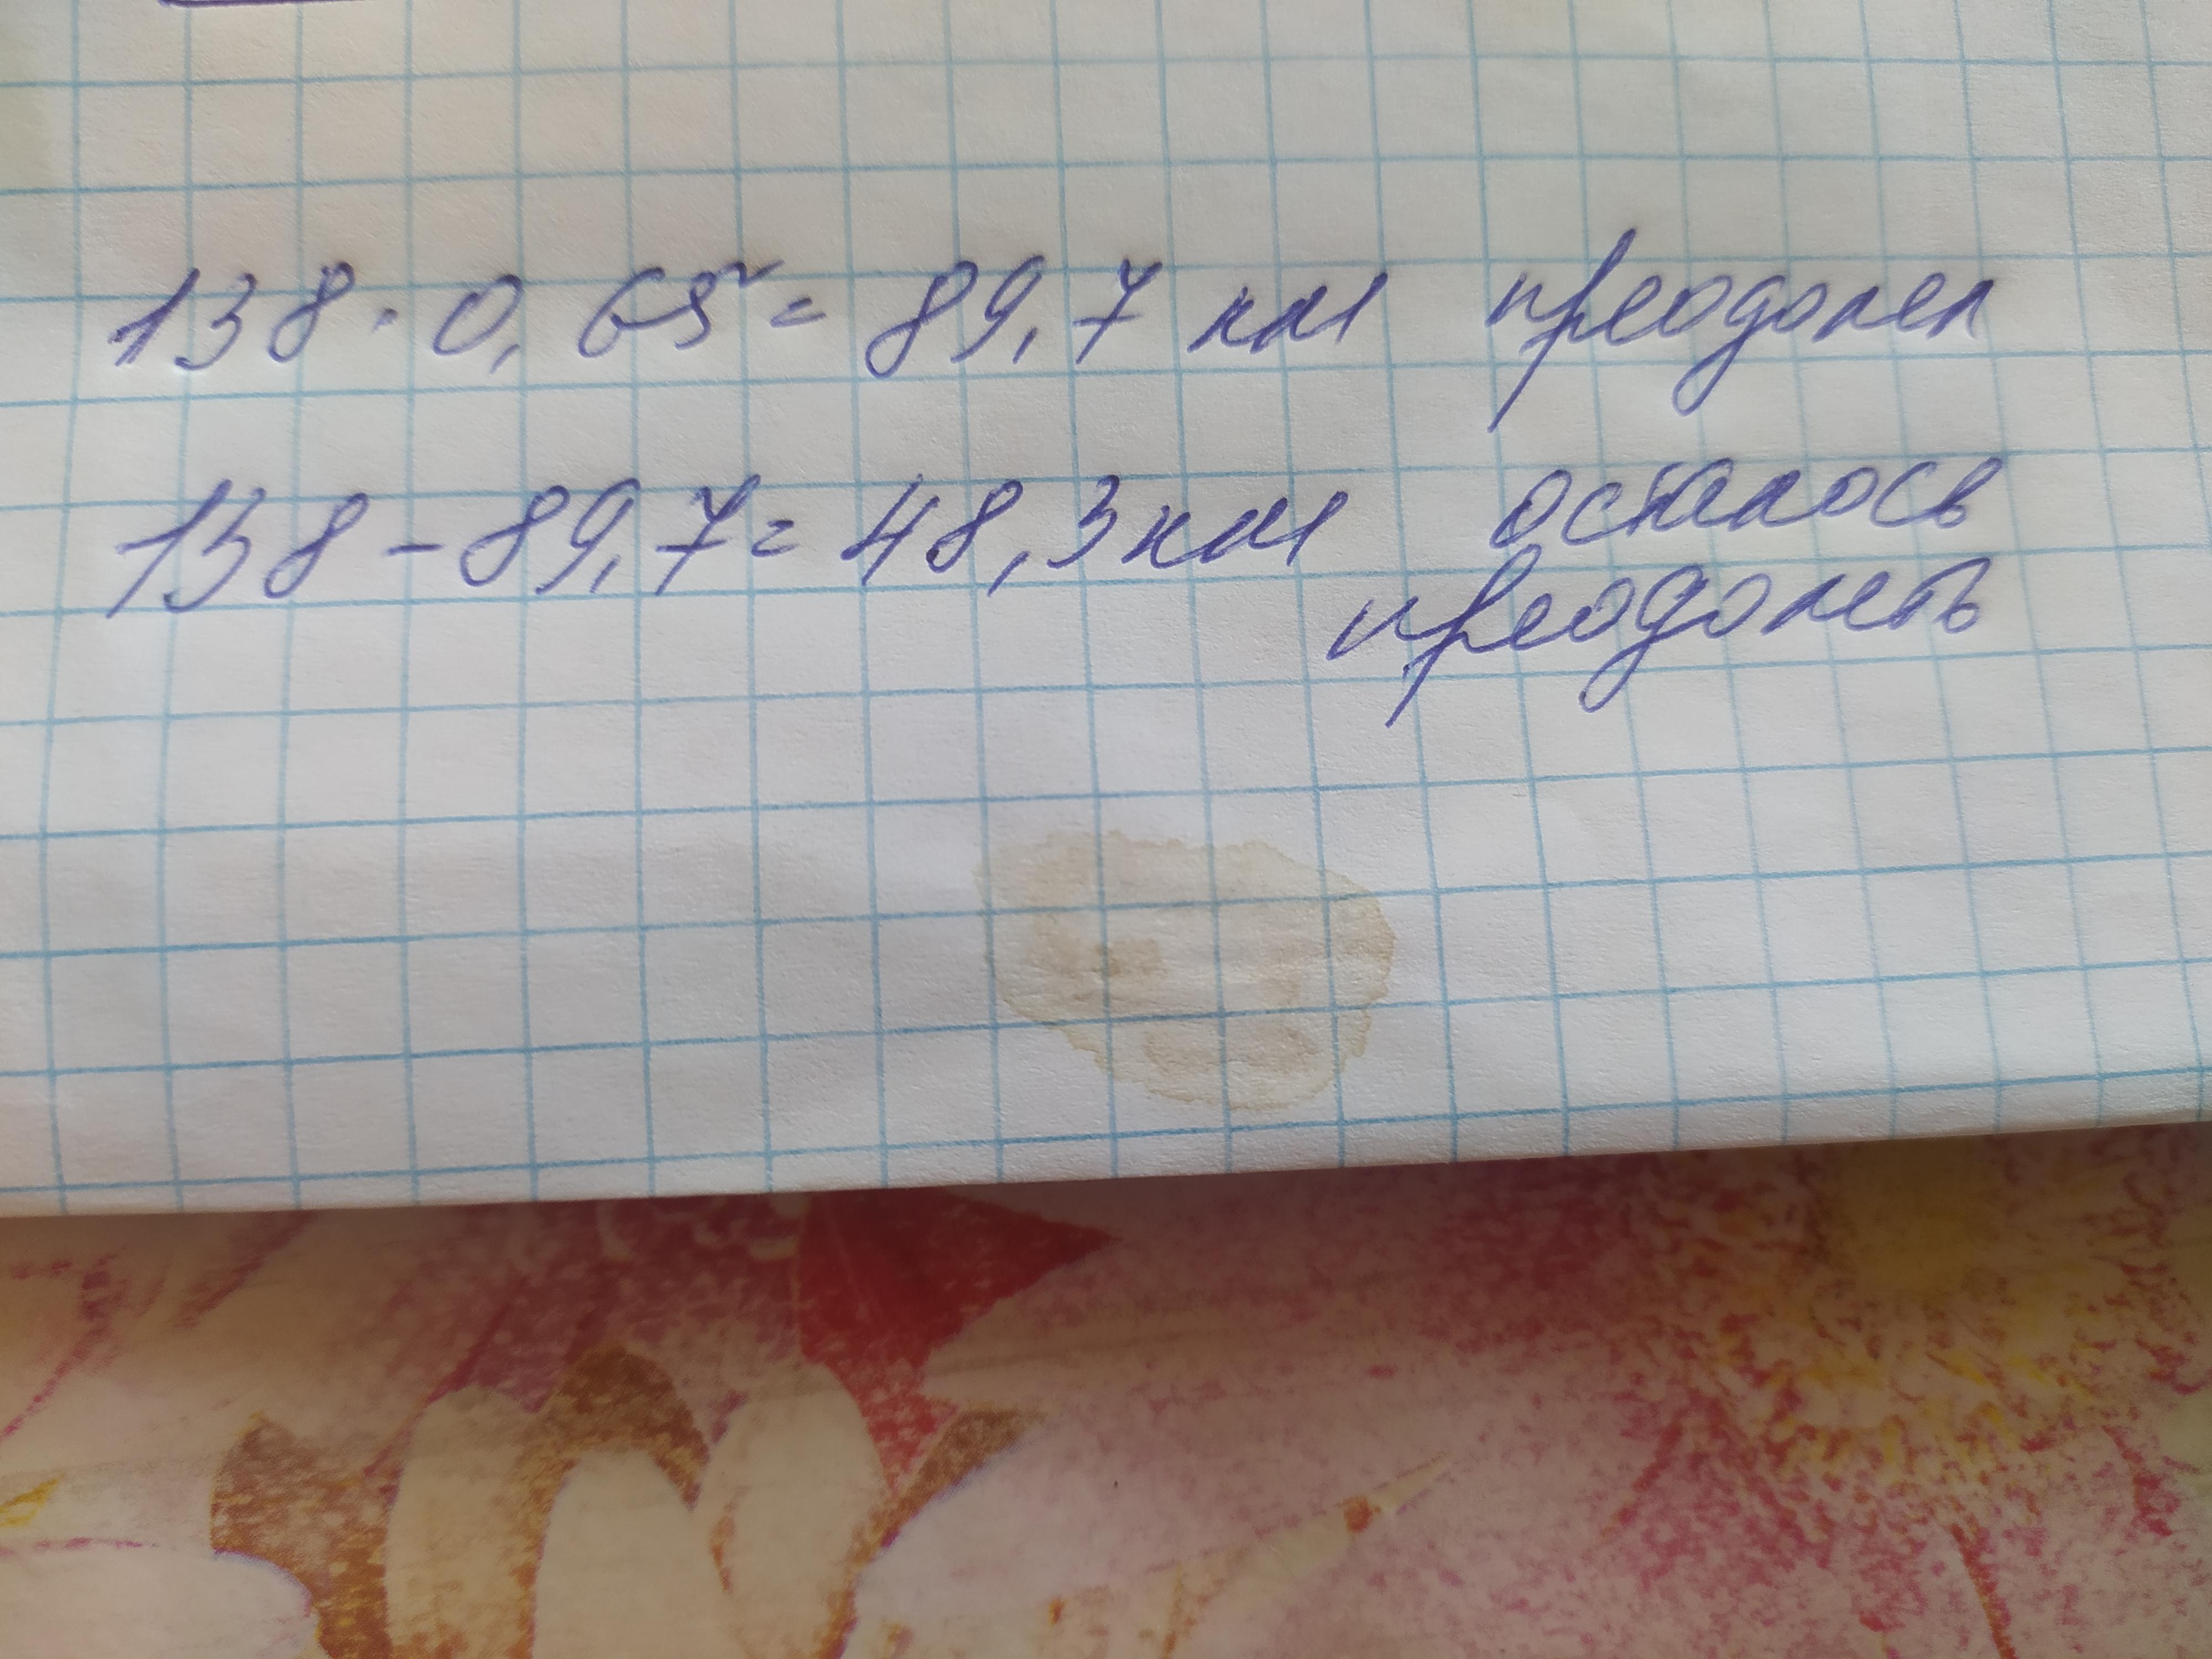 138 · 0,65 = 89,7 км преодолел
138 - 89,7 = 48,3 км осталось
преодолеть